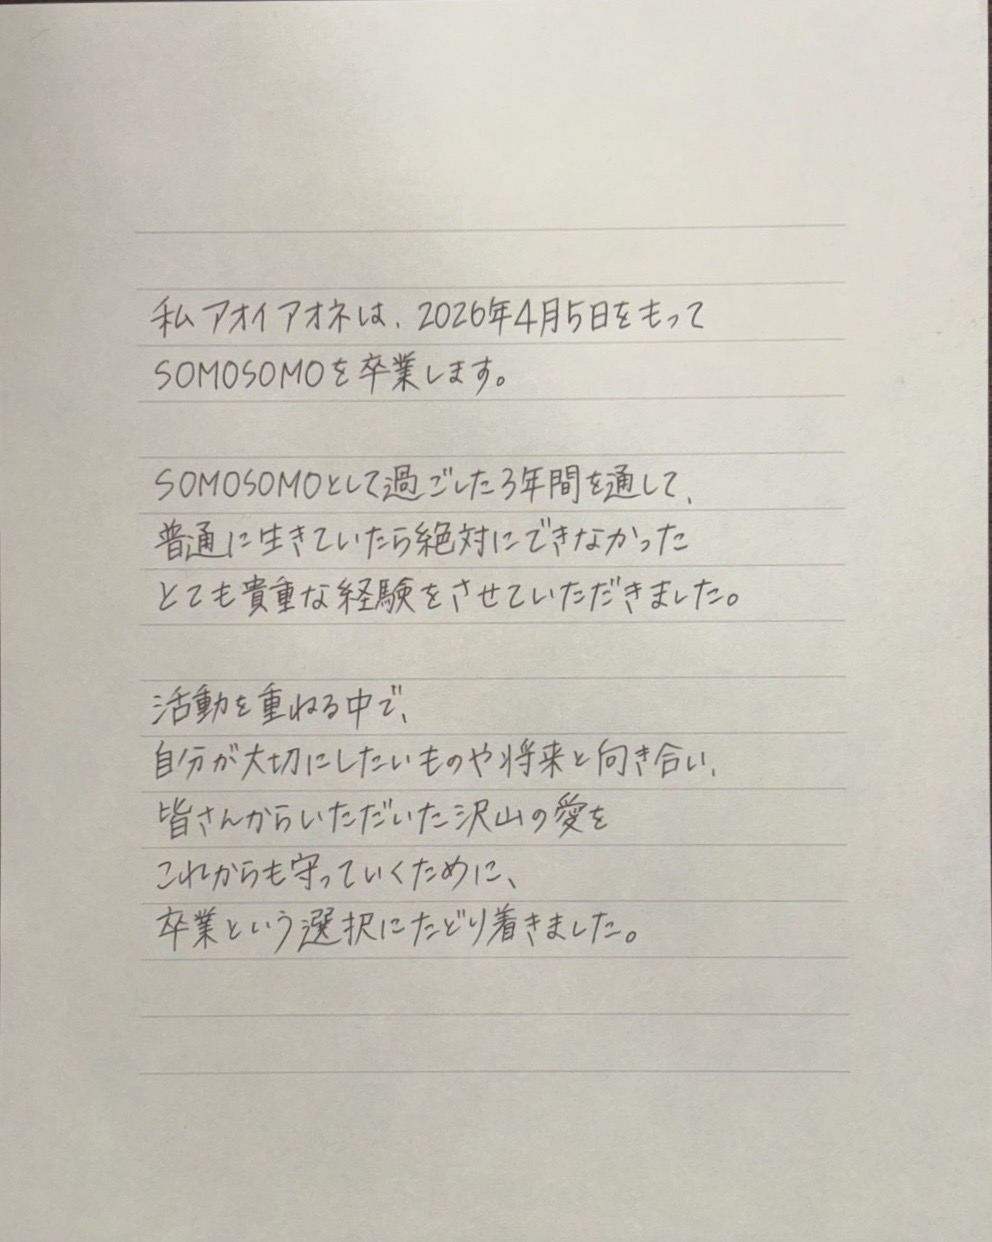 私アオイアオネは、2026年4月5日をもって
SOMOSOMOを卒業します。
SOMOSOMOとして過ごした3年間を通して、
普通に生きていたら絶対にできなかった
とても貴重な経験をさせていただきました。
活動を重ねる中で、
自分が大切にしたいものや将来と向き合い、
皆さんからいただいた沢山の愛を
これからも守っていくために、
卒業という選択にたどり着きました。